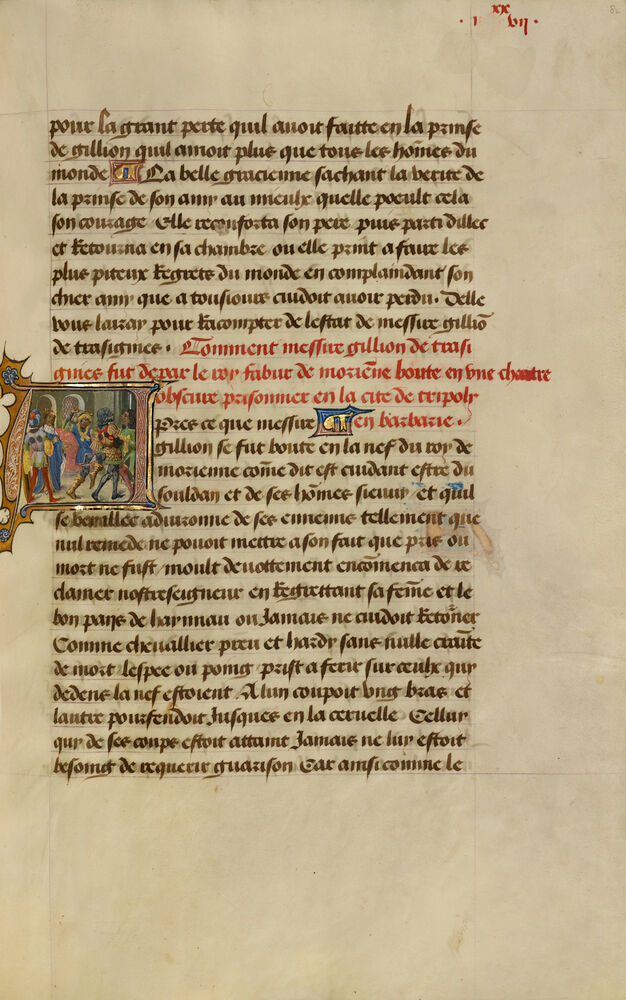 .i xx vii.
82
pour la grant perte quil auoit faitte en la prinse
de gillion quil amoit plus que tous les hom̃es du
monde La belle gracienne sachant la verite de
la prinse de son amy au mieulx quelle poeult cela
son courage Elle reconforta son pere puis parti dillec
et Retourna en sa chambre ou elle print a faire les
plus piteux Regrets du monde en complaindant son
chier amy que a tousiours cuidoit auoir perdu. Delle
vous lairay pour Racompter de lestat de messire gilliõ
de trasignies. Comment messire gillion de trasi
gnies fut de par le roy fabur de moriẽne boute en vne chartre
obscure prisonnier en la cite de tripoly
Pres ce que messire en barbarie.
gillion se fut boute en la nef du roy de
morienne com̃e dit est cuidant estre du
souldan et de ses hom̃es sieuuy et quil
se vey aduironne de ses ennemis tellement que
nul remede ne pouoit mettre a son fait que pris ou
mort ne fust moult deuottement encom̃enca de re
clamer nostreseigneur en Regrettant sa fem̃e et le
bon pays de haynnau ou Jamais ne cuidoit Retor̃ner
Comme cheuallier preu et hardy sans nulle crainte
de mort lespee ou poing prist a ferir sur ceulx quy
dedens la nef estoient A lun coupoit vng bras et
lautre pourfendoit Jusques en la ceruelle Celluy
quy de ses coups estoit attaint Jamais ne luy estoit
besoing de requerir guarison Car ainsi comme le